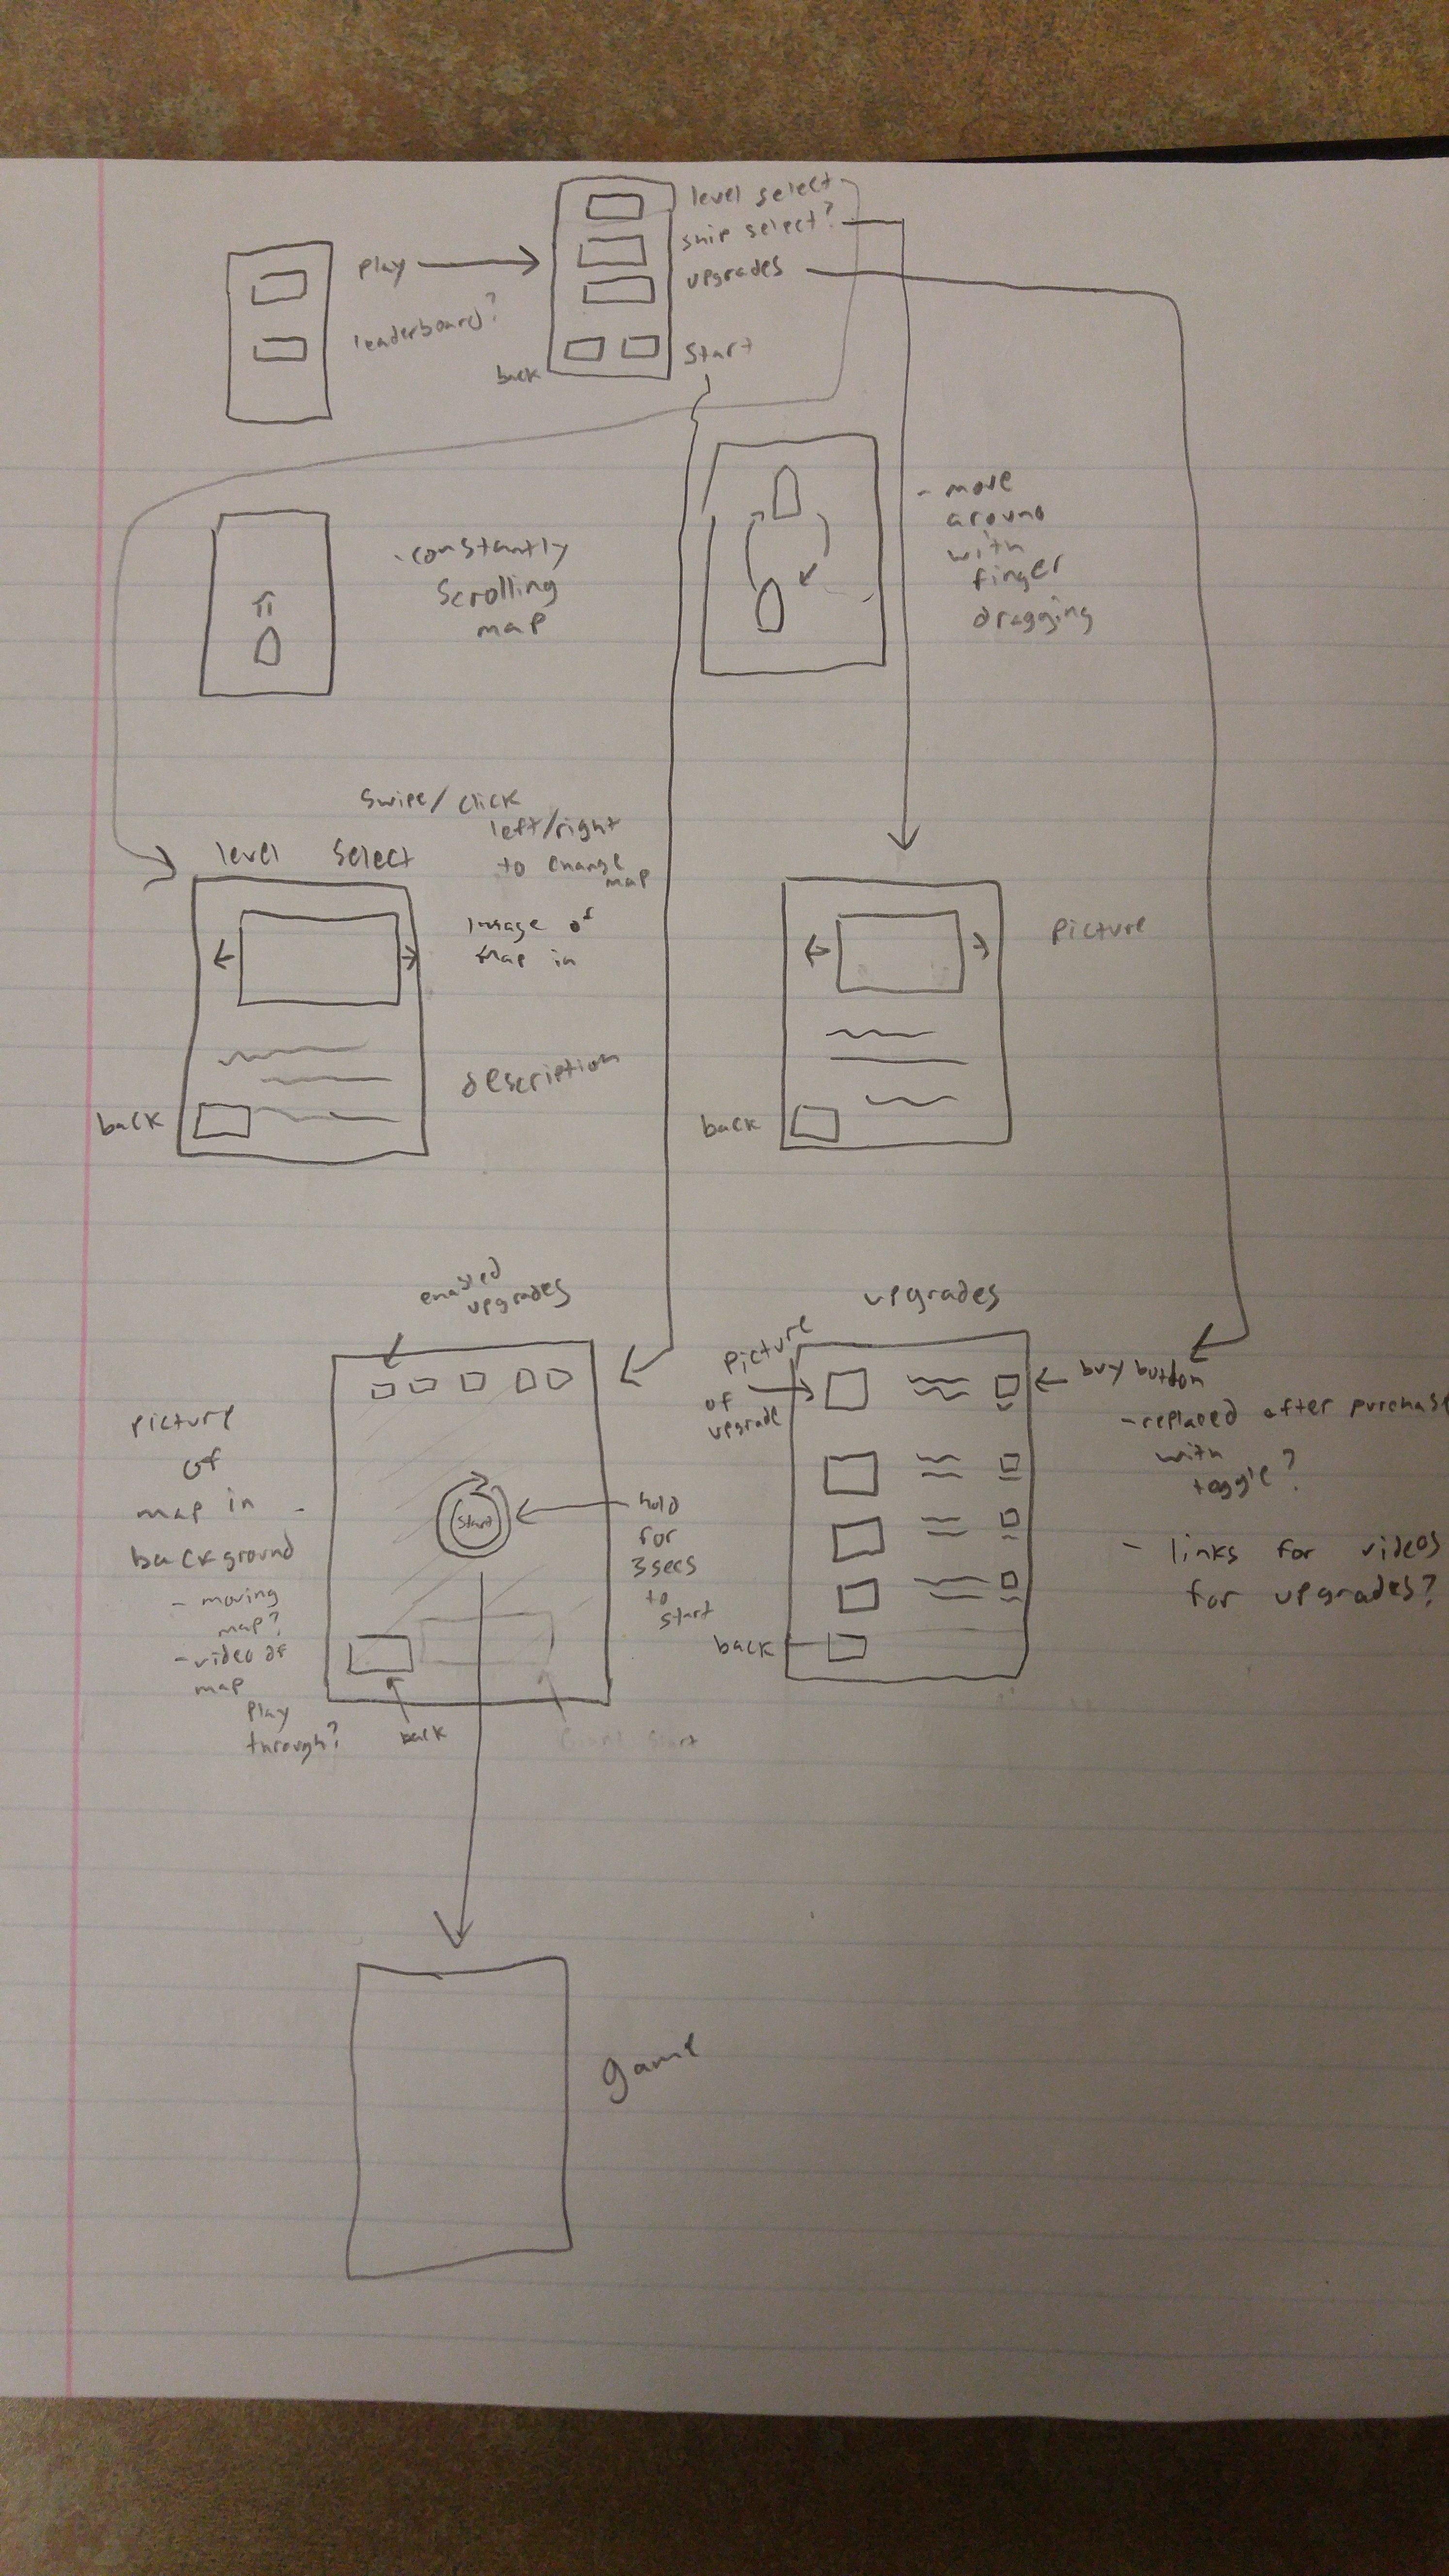 level select
ship select?
upgrades
play
leaderboard?
back
start
- constantly
scrolling
map
- move
around
with
finger
dragging
swipe/click
left/right
to change
map
level select
image of
map in
description
back
picture
back
enabled
upgrades
picture
of
map in
background
- moving
map?
- video of
map
play
through?
start
hold
for
3secs
to
start
back
start
upgrades
picture
of
upgrade
buy button
- replaced after purchase
with
toggle?
- links for videos
for upgrades?
back
game